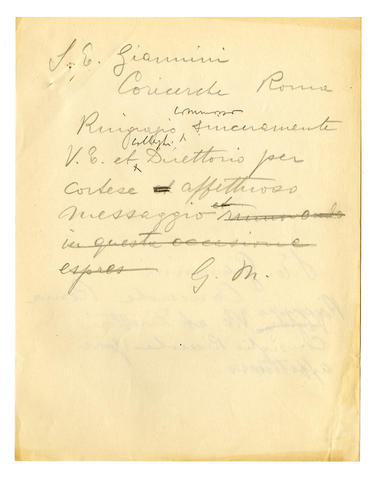 S. E. Giannini
Coricerche Roma
commosso
Ringrazio sinceramente
colleghi
V. E. et Direttorio per
cortese et affettuoso
messaggio et
in questa occasione
espres
G. M.